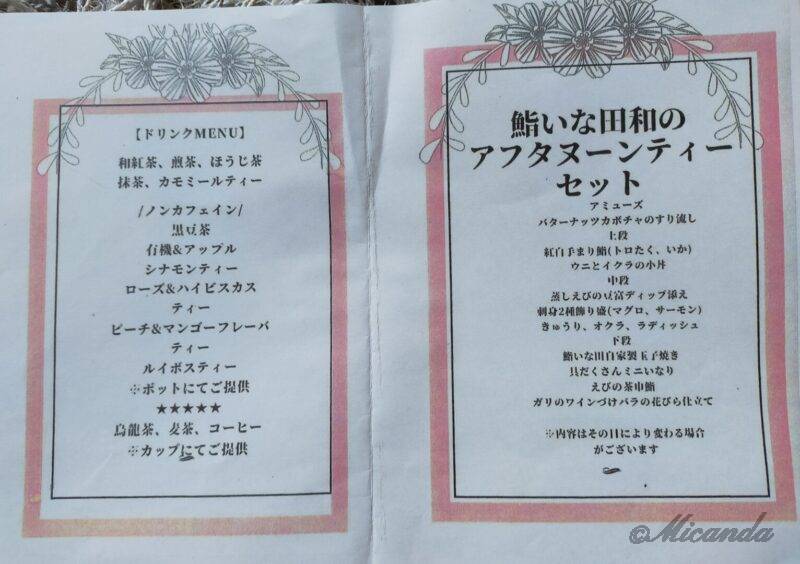 【ドリンクMENU】
和紅茶、煎茶、ほうじ茶
抹茶、カモミールティー
/ノンカフェイン/
黒豆茶
有機&アップル
シナモンティー
ローズ&ハイビスカス
ティー
ピーチ&マンゴーフレーバ
ティー
ルイボスティー
※ポットにてご提供
★★★★★
烏龍茶、麦茶、コーヒー
※カップにてご提供
鮨いな田和の
アフタヌーンティー
セット
アミューズ
バターナッツカボチャのすり流し
上段
紅白手まり鮨(トロたく、いか)
ウニとイクラの小丼
中段
蒸しえびの豆富ディップ添え
刺身2種飾り盛(マグロ、サーモン)
きゅうり、オクラ、ラディッシュ
下段
鮨いな田自家製玉子焼き
具だくさんミニいなり
えびの茶巾鮨
ガリのワインづけバラの花びら仕立て
※内容はその日により変わる場合
がございます
©Micanda